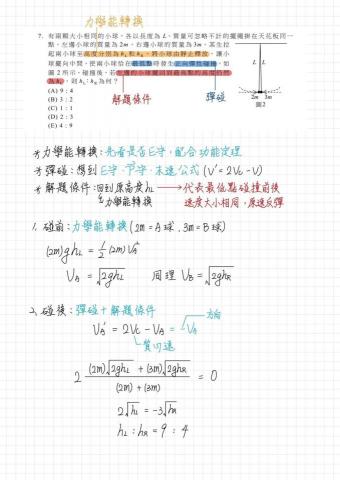 力學能轉換
7. 有兩顆大小相同的小球，各以長度為 L、質量可忽略不計的擺繩掛在天花板同一
點，左邊小球的質量為 2m，右邊小球的質量為 3m，某生拉
起兩小球至高度分別為 hL 和 hR，將小球由靜止釋放，讓小
球擺向中間，使兩小球恰在最低點時發生正向彈性碰撞，如
圖 2 所示，碰撞後，若左邊的小球擺回到最高點的高度仍然
為 hL，則 hL：hR 為何？
(A) 9：4
(B) 3：2
(C) 1：1
(D) 2：3
(E) 4：9
解題條件
彈碰
L L
2m 3m
圖2
*力學能轉換：先看是否E守，配合功能定理
*彈碰：想到 E守、P守、末速公式 (V'=2Vc-V)
*解題條件：回到原高度hL → 代表最低點碰撞前後
力學能轉換 速度大小相同，原速反彈
1. 碰前：力學能轉換 (2m=A球，3m=B球)
(2m)ghL = 1/2 (2m) VA²
VA = √2ghL 同理 VB = √2ghR
2. 碰後：彈碰+解題條件
方向
VA' = 2Vc - VA = -VA
質心速
2 (2m)√2ghL + (3m)√2ghR / (2m) + (3m) = 0
2√hL = -3√hR
hL : hR = 9 : 4